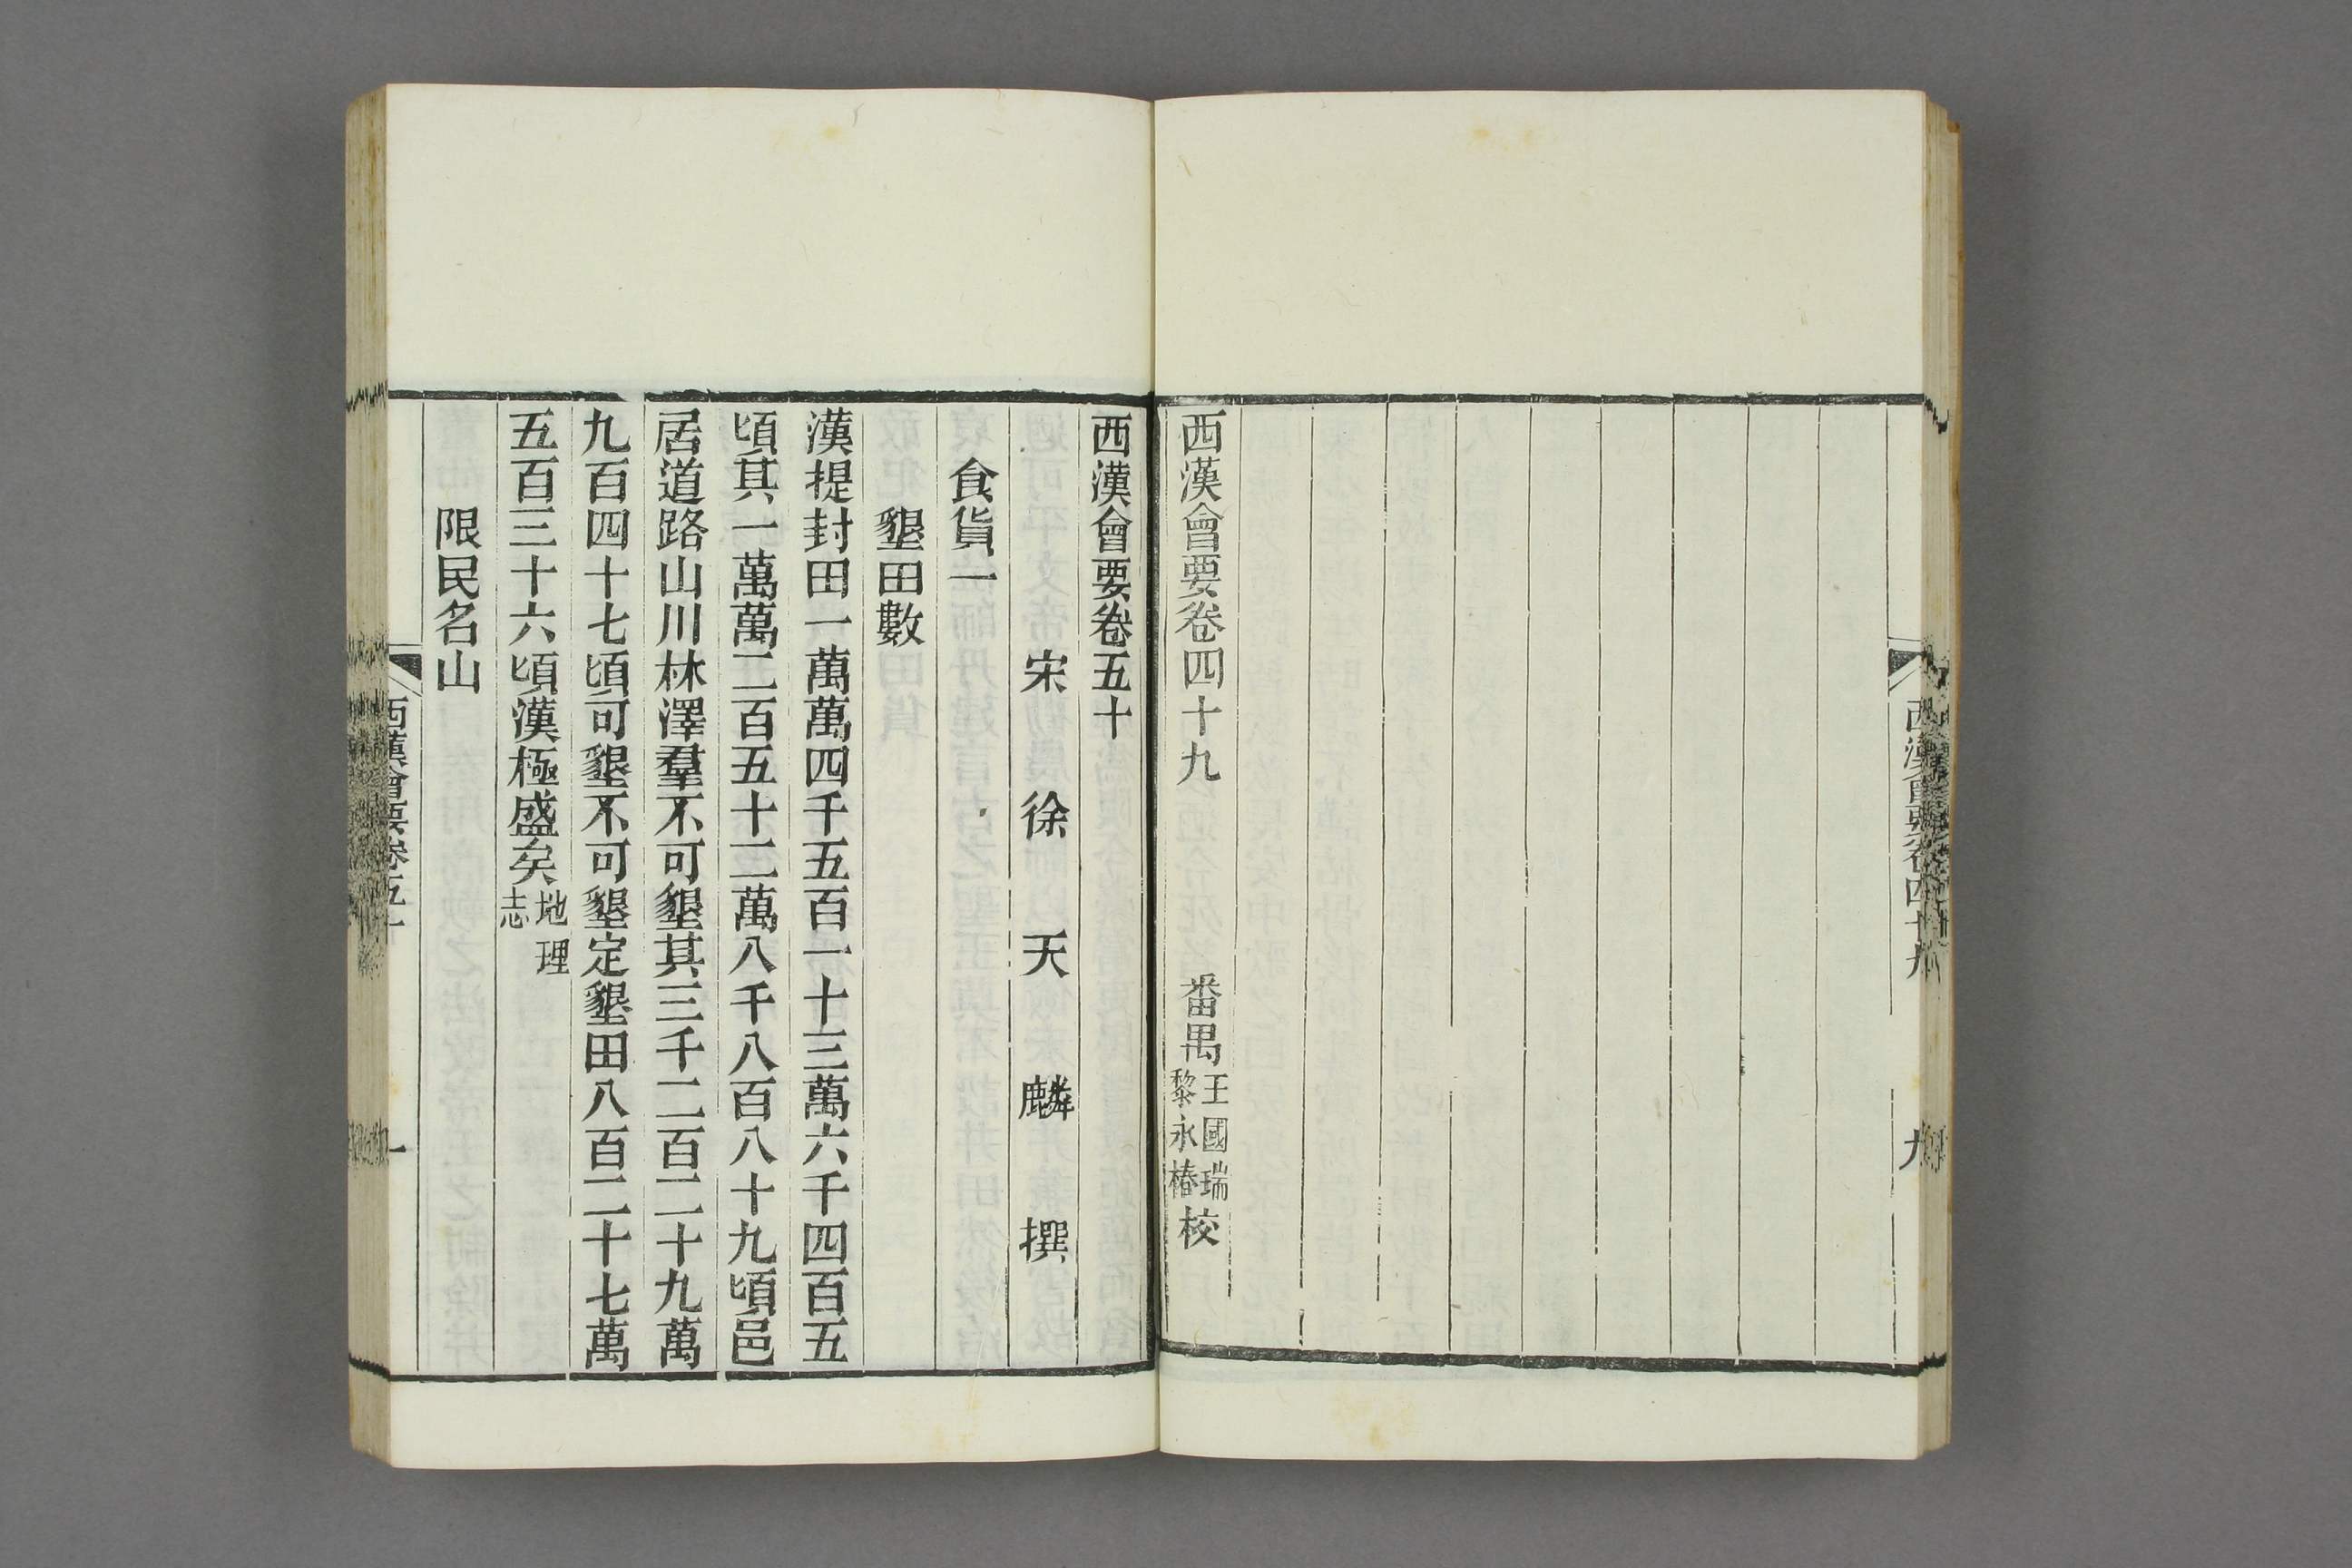 西漢會要卷四十九
九
西漢會要卷四十九 番禺王國瑞黎永椿校
西漢會要卷五十
宋徐天麟撰
食貨一
墾田數
漢提封田一萬萬四千五百一十三萬六千四百五
頃其一萬萬二百五十二萬八千八百八十九頃邑
居道路山川林澤羣不可墾其三千二百二十九萬
九百四十七頃可墾不可墾定墾田八百二十七萬
五百三十六頃漢極盛矣地理志
限民名山
西漢會要卷五十
一